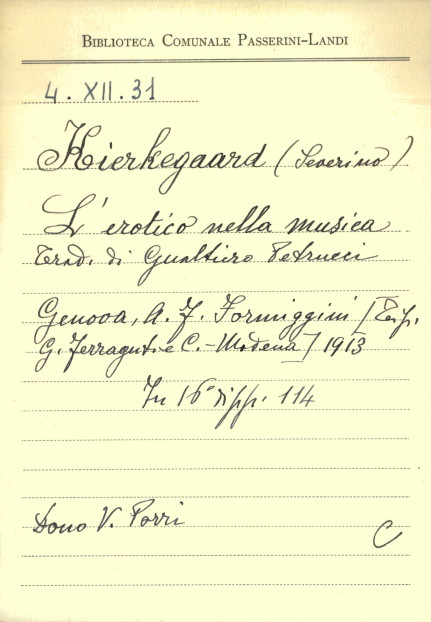 BIBLIOTECA COMUNALE PASSERINI-LANDI
4. XII. 31
Kierkegaard (Severino)
L'erotico nella musica
Trad. di Gualtiero Petrucci
Genova, A. F. Formiggini [Tip.
G. Ferraguti e C. - Modena] 1913
In 16° di pp. 114
Dono V. Porri
C